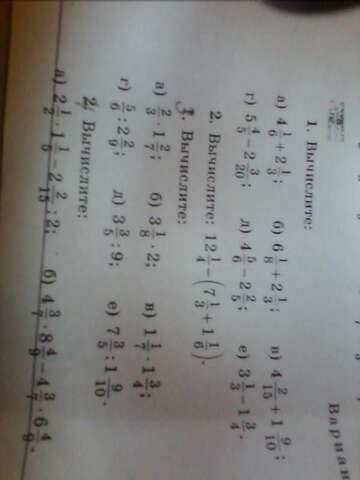 Вариан
1. Вычислите:
а) 4 1/6 + 2 1/3; б) 6 1/8 + 2 1/3; в) 4 2/15 + 1 9/10;
г) 5 4/5 − 2 3/20; д) 4 5/6 − 2 2/5; е) 3 1/3 − 1 3/4.
2. Вычислите: 12 1/4 − (7 1/3 + 1 1/6).
1. Вычислите:
а) 2/3 · 1 2/7; б) 3 1/8 · 2; в) 1 1/7 · 1 3/4;
г) 5/6 : 2 2/9; д) 3 3/5 : 9; е) 7 3/5 : 1 9/10.
2. Вычислите:
а) 2 1/2 · 1 1/5 − 2 2/15 : 2; б) 4 3/7 · 8 4/9 − 4 3/7 · 6 4/9.